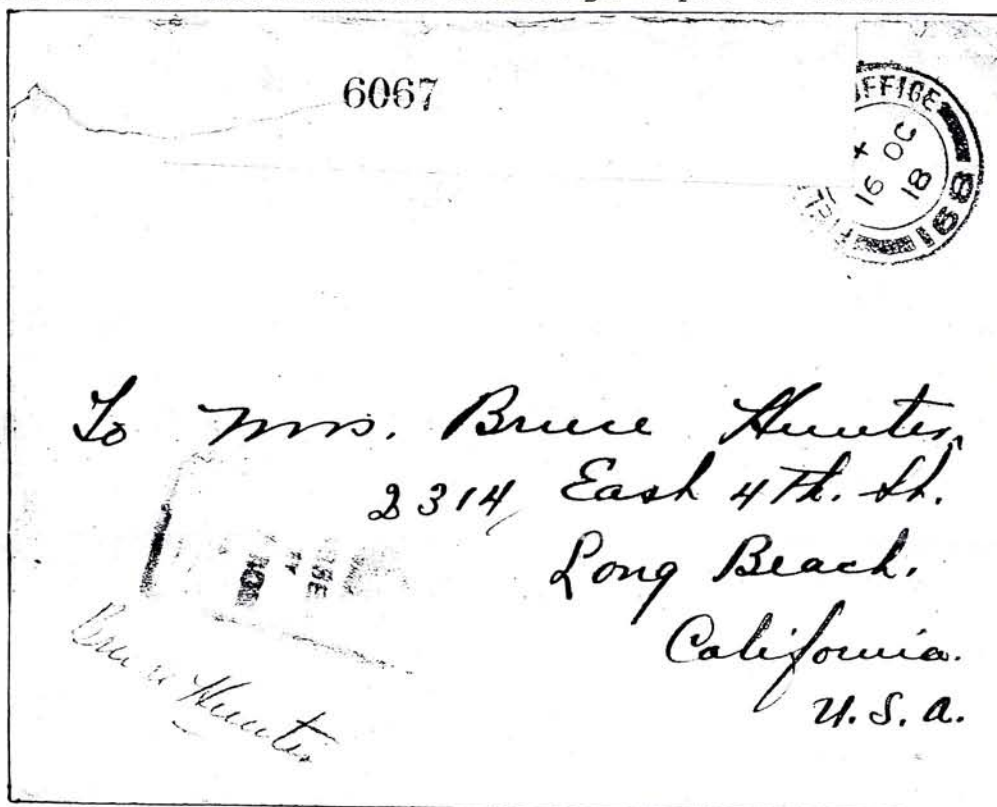 6067
OFFICE
X
16 OC
18
168
To Mrs. Bruce Hunter,
2314 East 4th. St.
Long Beach.
California.
U.S.A.
Bruce Hunter